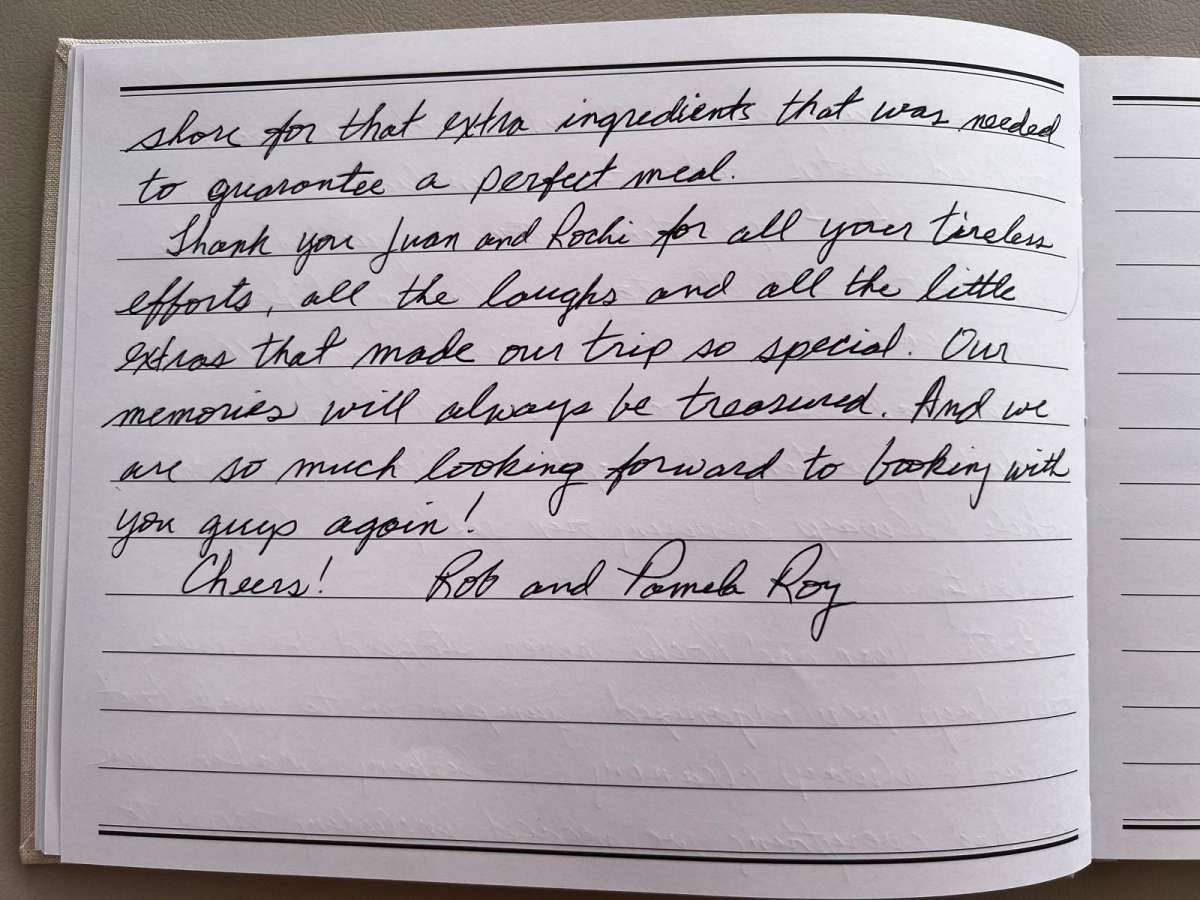 shore for that extra ingredients that was needed
to guarantee a perfect meal.
Thank you Juan and Rochi for all your tireless
efforts, all the laughs and all the little
extras that made our trip so special. Our
memories will always be treasured. And we
are so much looking forward to booking with
you guys again!
Cheers! Rob and Pamela Roy